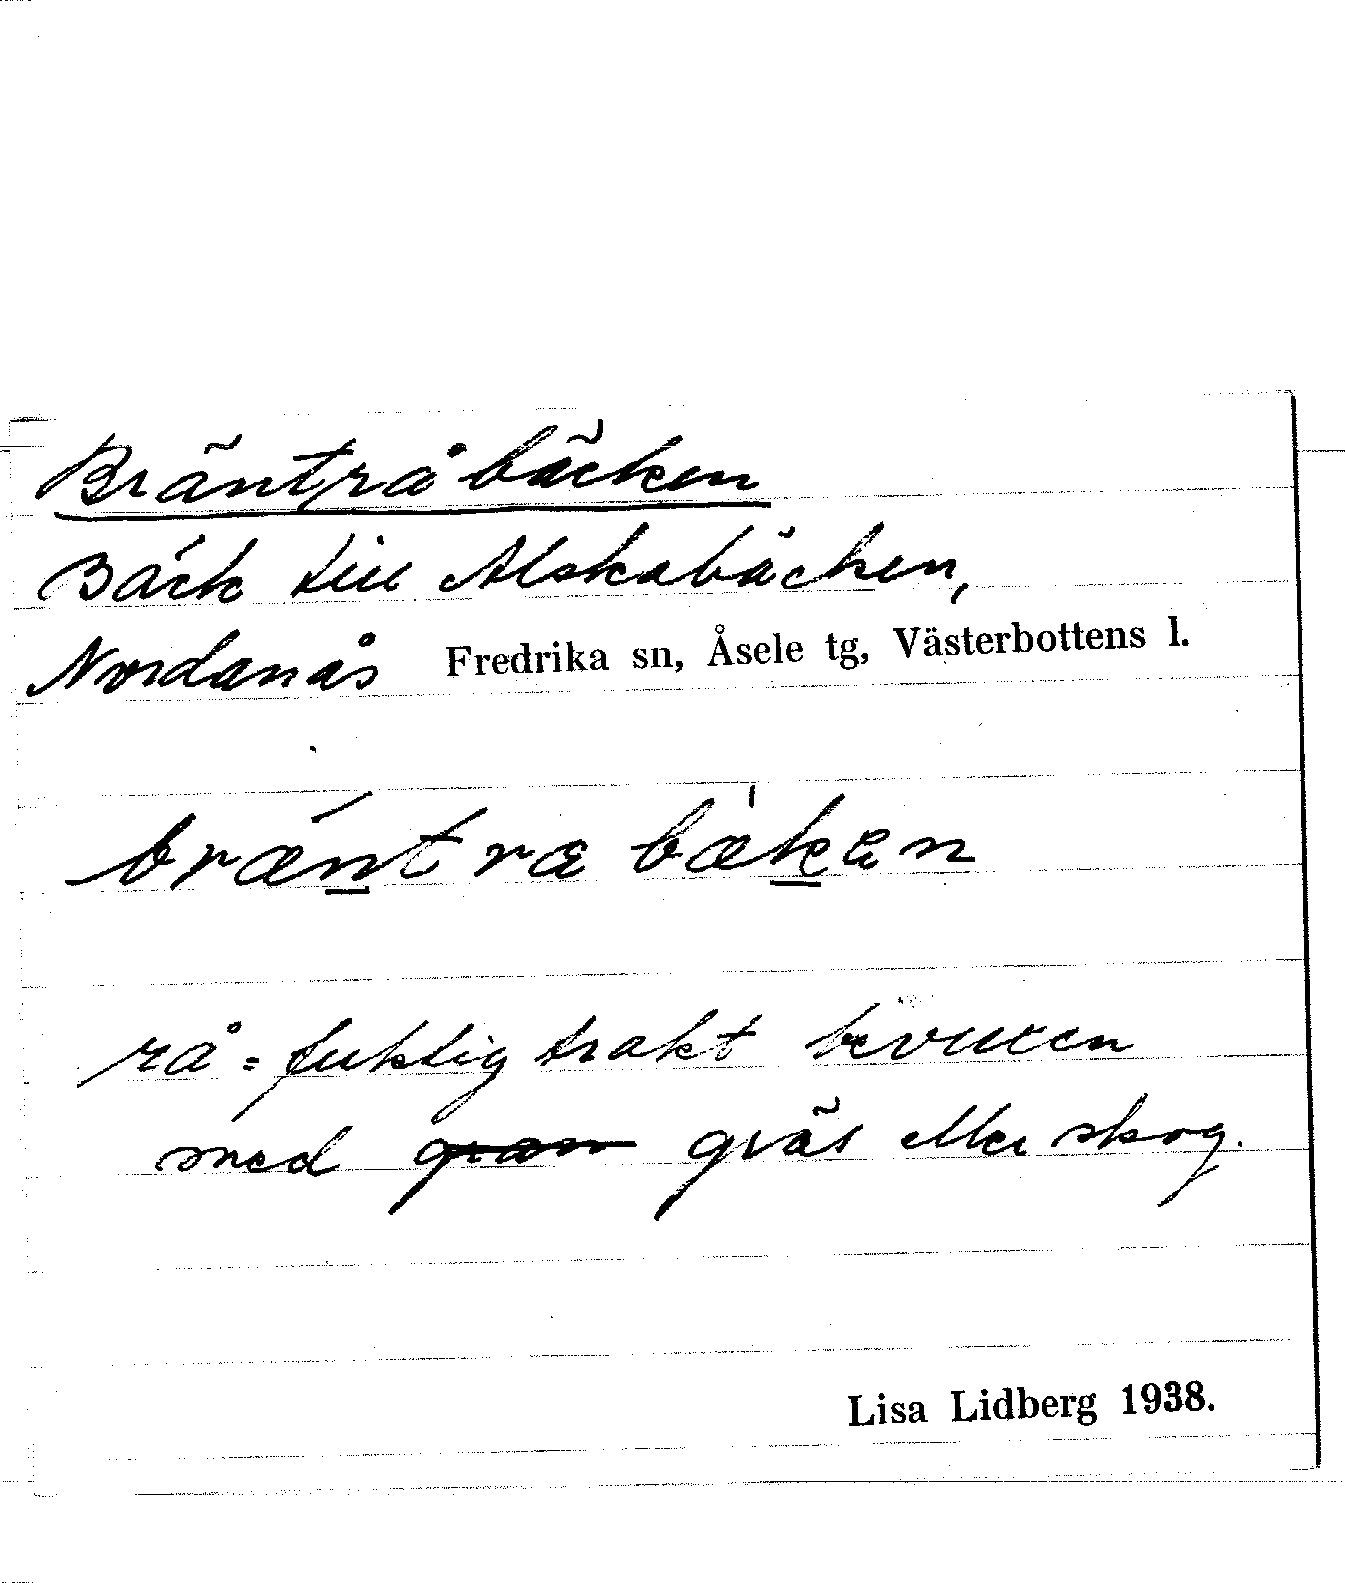 Bränträbäcken
Bäck till Alskabäcken,
Nordanås Fredrika sn, Åsele tg, Västerbottens l.
bræntræbækæn
rå = fuktig trakt bevuxen
med gran gräs eller skog.
Lisa Lidberg 1938.